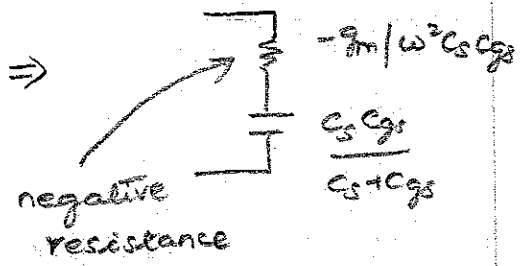 ⇒
-gm/ω²CsCgs
CsCgs
Cs+Cgs
negative
resistance